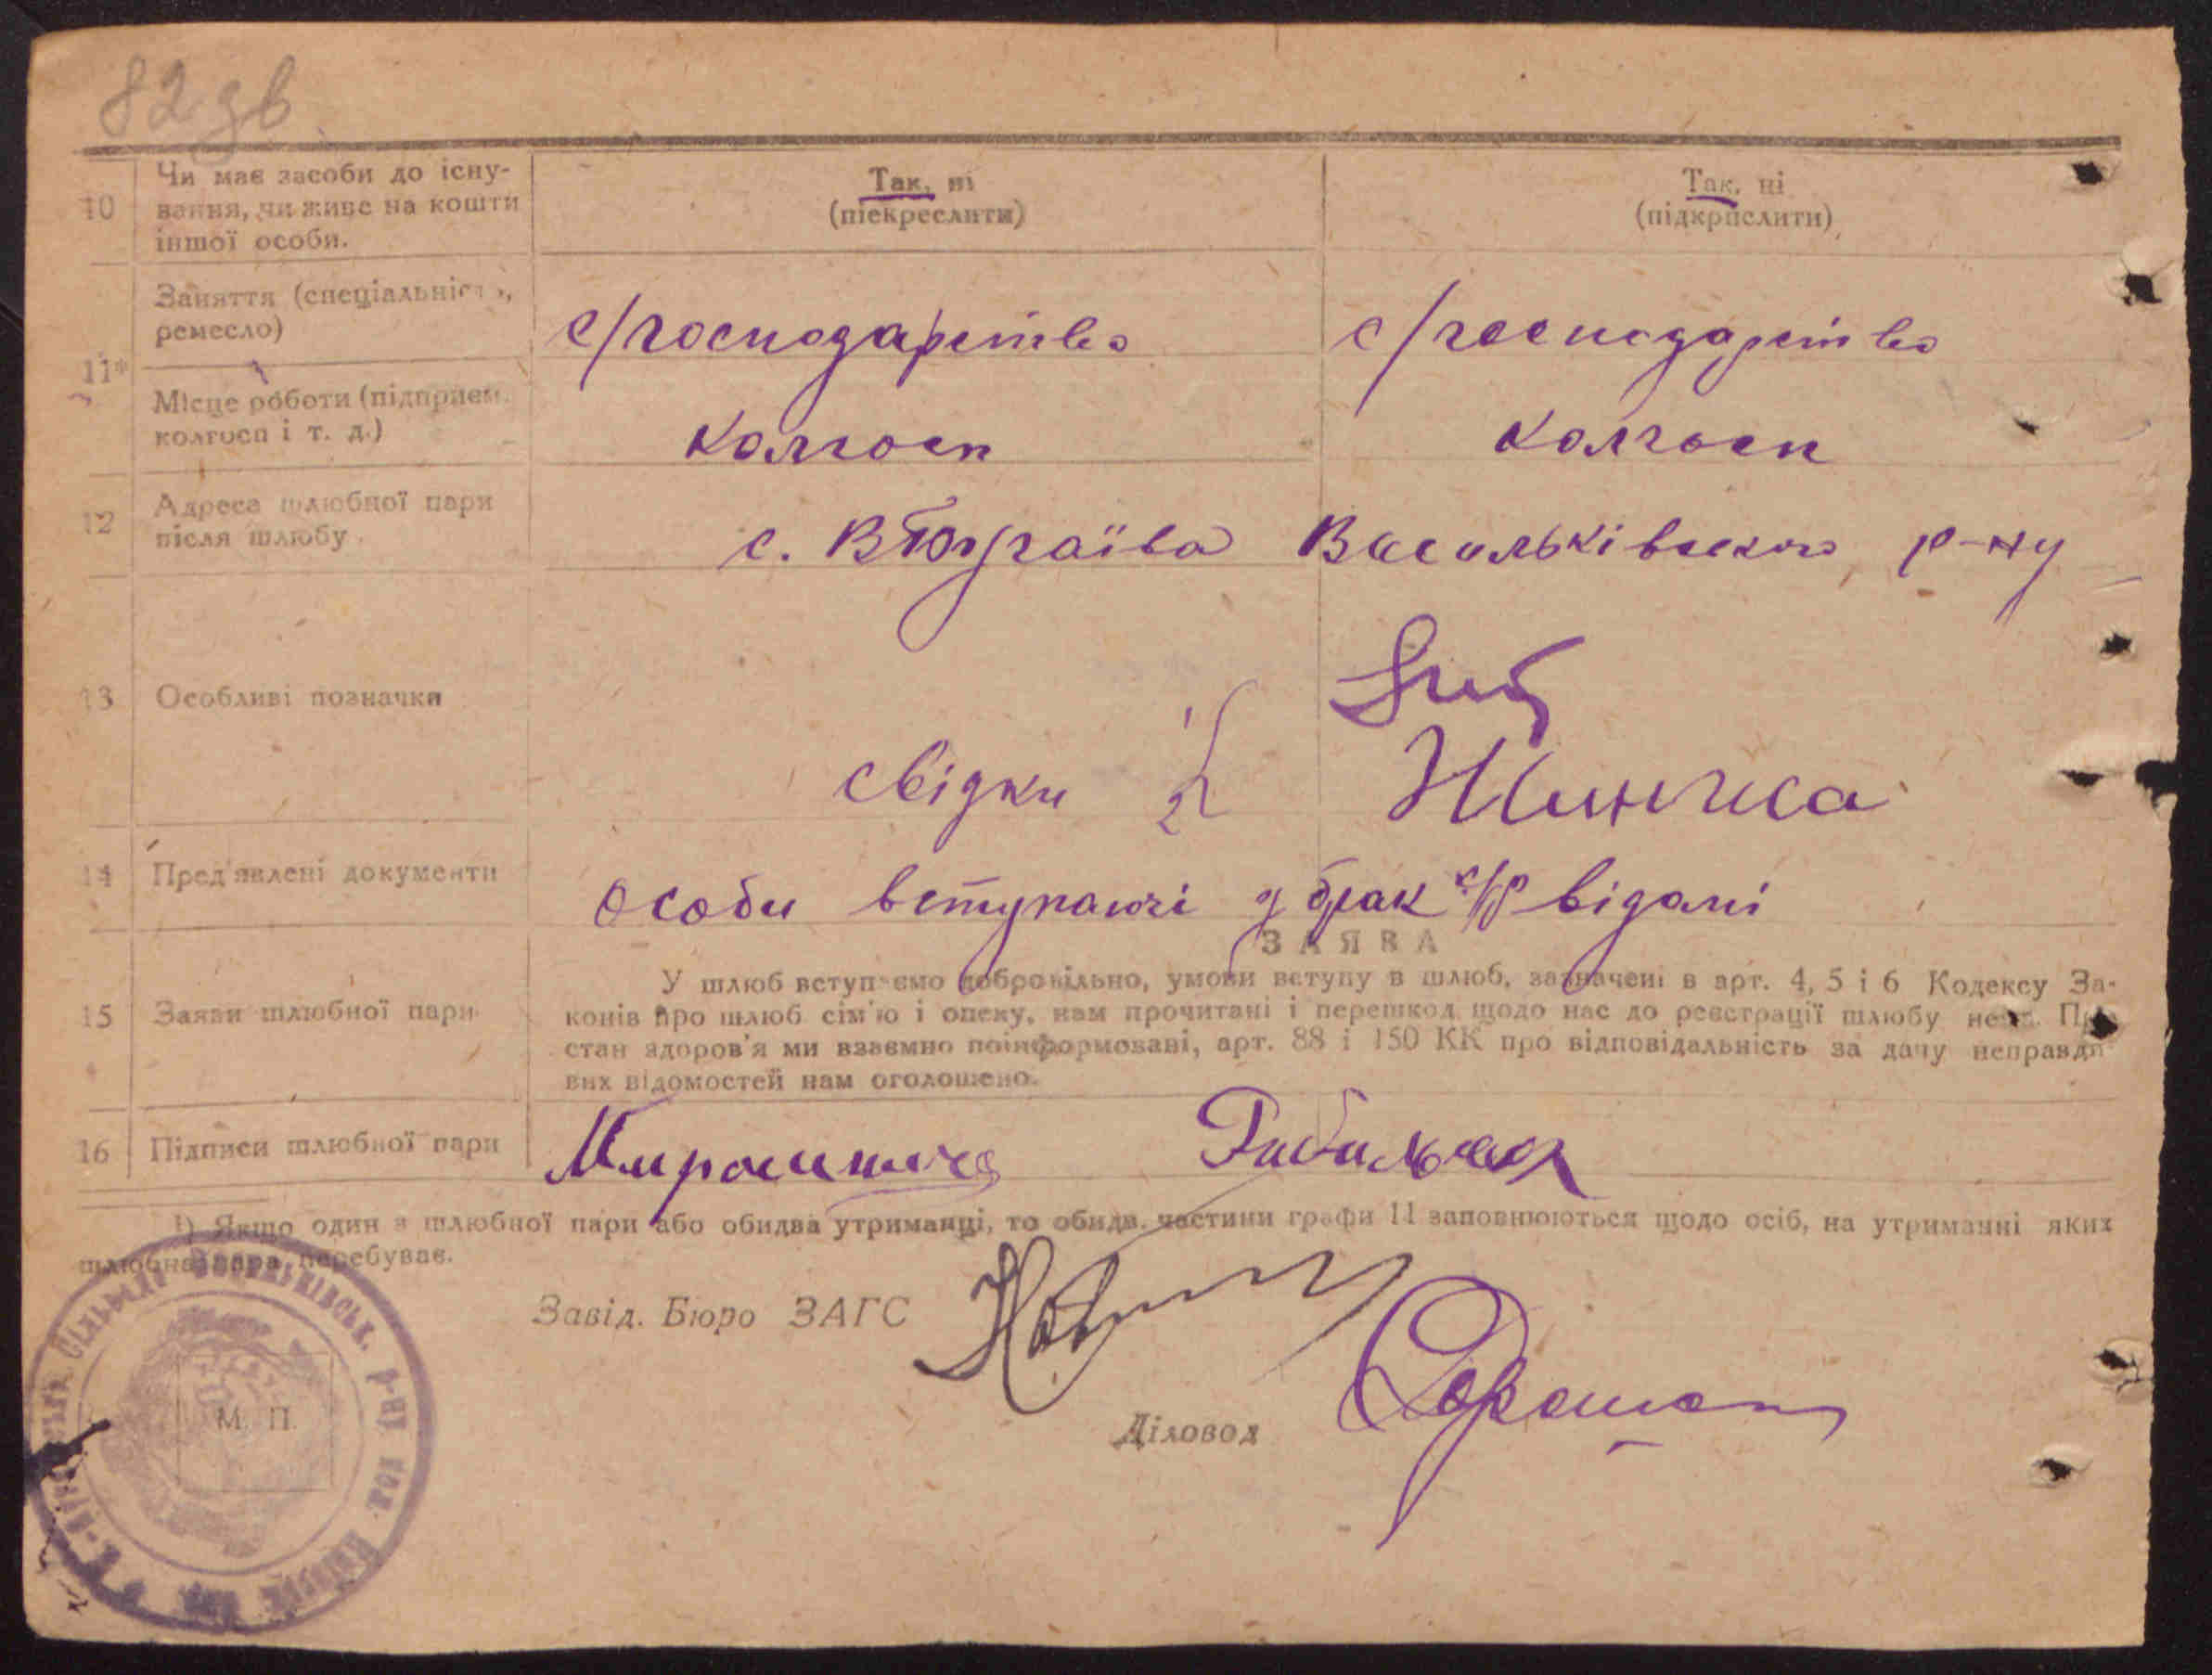 82 зв
10 Чи має засоби до існу-
вання, чи живе на кошти
іншої особи.
Так, ні
(піекреслити)
Так, ні
(підкрпслити)
11* Заняття (спеціальність,
ремесло)
с/господарство
с/господарство
Місце роботи (підприєм.
колгосп і т. д.)
колгосп
колгосп
12 Адреса шлюбної пари
після шлюбу.
с. Васильківського р-ну
13 Особливі позначки
свідки 1
2
14 Пред'явлені документи
особи вступаючі у брак с/р відомі
ЗАЯВА
15 Заяви шлюбної пари
У шлюб вступаємо добровільно, умови вступу в шлюб, зазначені в арт. 4, 5 і 6 Кодексу За-
конів про шлюб сім'ю і опеку, нам прочитані і перешкод щодо нас до реєстрації шлюбу нема. Про
стан здоров'я ми взаємно поінформовані, арт. 88 і 150 КК про відповідальність за дачу неправди-
вих відомостей нам оголошено.
16 Підписи шлюбної пари
¹) Якщо один з шлюбної пари або обидва утриманці, то обидв. частини графи 11 заповнюються щодо осіб, на утриманні яких
шлюбна пара перебуває.
Завід. Бюро ЗАГС
М. П.
Діловод